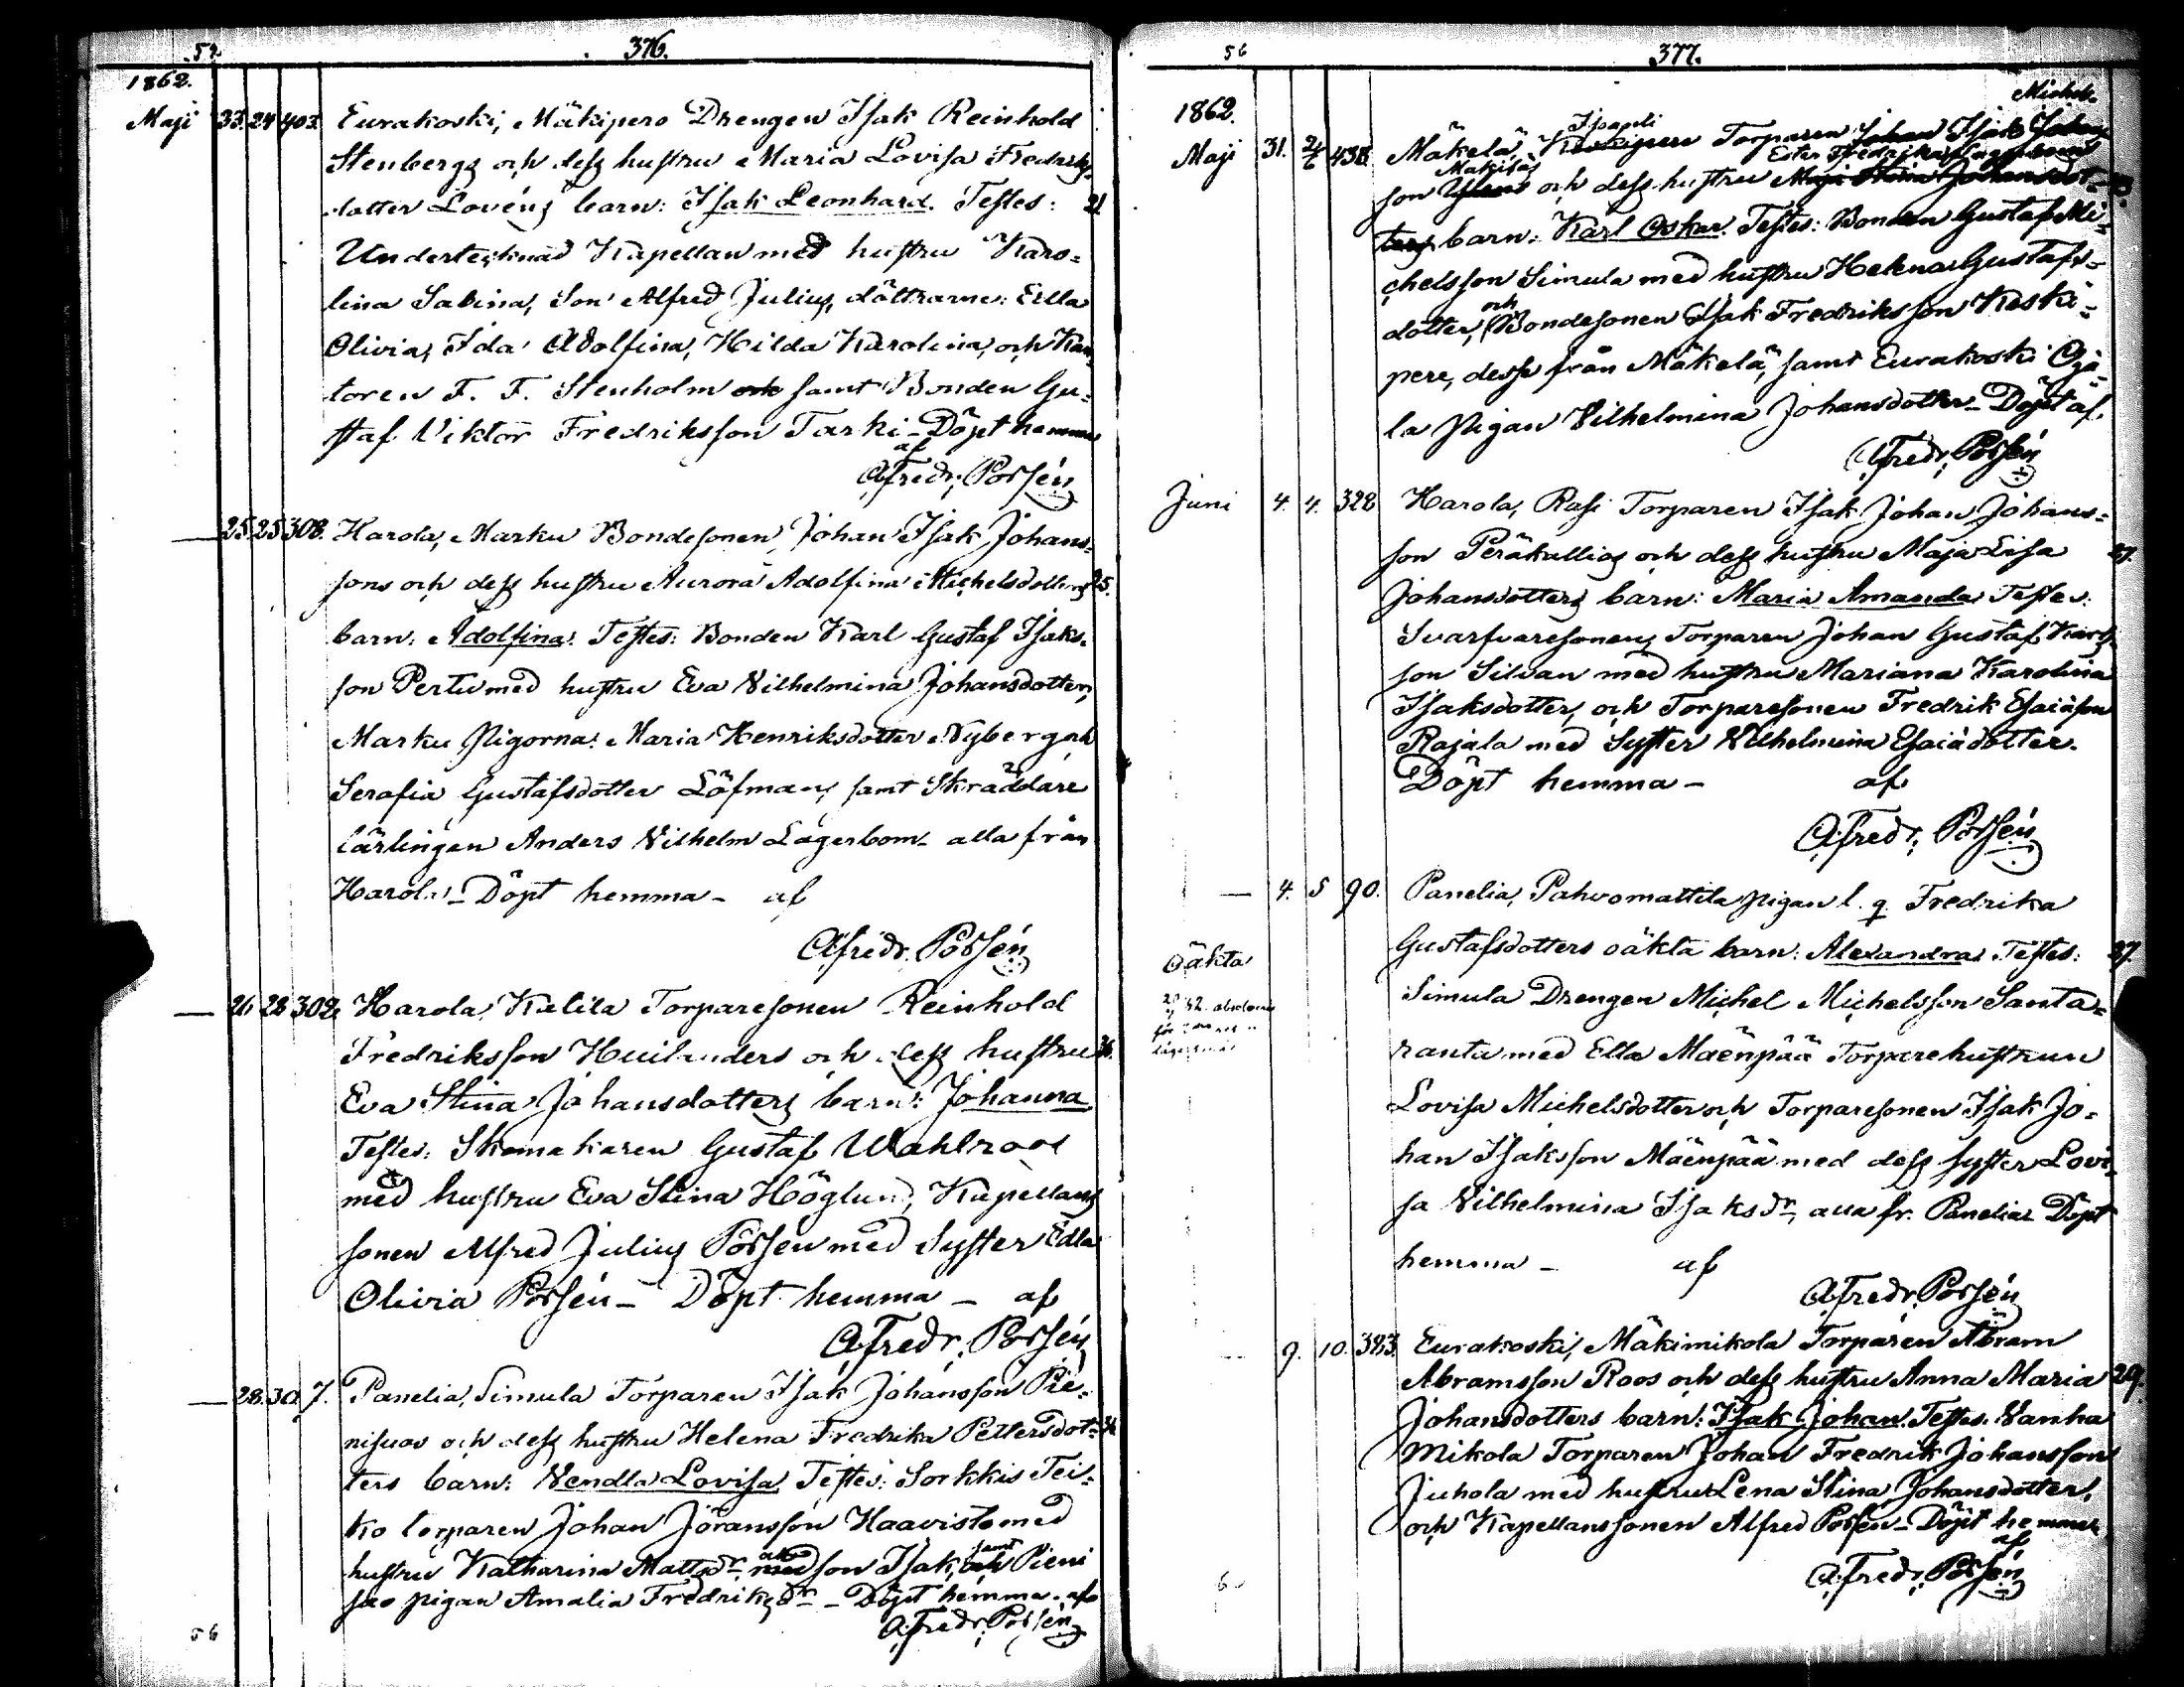 376.
1862.
Maji 23. 24 403. Eurakoski, Mäkipero Drengen Isak Reinhold
Stenbergs och dess hustru Maria Lovisa Fredriks-
dotter Lovéns barn: Isak Leonhard. Testes: 21
Undertecknad Kapellan med hustru Karo-
lina Sabina, Son Alfred Julius, döttrarne: Edla
Olivia, Ida Adolfina, Hilda Karolina, och Kan-
toren F. F. Stenholm och samt Bonden Gu-
staf Viktor Fredriksson Tarki - Döpt hemma
af
A. Fredr. Porsén
25 25 308. Harola, Marku Bondesonen Johan Isak Johans-
sons och dess hustru Aurora Adolfina Michelsdotters 25.
barn: Adolfina. Testes: Bonden Karl Gustaf Isaks-
son Pertu med hustru Eva Vilhelmina Johansdotter,
Marku Pigorna: Maria Henriksdotter Nyberg och
Serafia Gustafsdotter Löfman, samt Skräddare
lärlingen Anders Vilhelm Lagerbom - alla från
Harola - Döpt hemma - af
A. Fredr. Porsén
26 28 302. Harola, Kulila Torparesonen Reinhold
Fredriksson Huilanders och dess hustru 36.
Eva Stina Johansdotters barn: Johanna
Testes: Skomakaren Gustaf Wahlroos
med hustru Eva Stina Höglund, Kapellans
sonen Alfred Julius Porsen med Syster Edla
Olivia Porsén - Döpt hemma - af
A. Fredr. Porsén
28. 30. 7. Panelia, Simula Torparen Isak Johansson Pie-
nisuos och dess hustru Helena Fredrika Pettersdot-
ters barn: Vendla Lovisa. Testes: Sorkkis Tei-
ko torparen Johan Jöransson Haavisto med
hustru Katharina Mattsdr. med son Isak, och samt Pieni
suo pigan Amalia Fredriksdr - Döpt hemma. af
A. Fredr. Porsén
56
377.
1862.
Maji 31. Mäkelä, Torparen Johan Isak Johans
son och dess hustru Maja Stina Johansdot-
ters barn: Karl Oskar. Testes: Bonden Gustaf Mi-
chelsson Simula med hustru Helena Gustafs-
dotter, och Bondesonen Isak Fredriksson Keski-
pere, desse från Mäkelä, samt Eurakoski Oja-
la Pigan Vilhelmina Johansdotter - Döpt af
A. Fredr. Porsén
Juni 4. 4. 328 Harola, Rasi Torparen Isak Johan Johans-
son Peräkallios och dess hustru Maja Lisa 27.
Johansdotters barn: Maria Amanda. Testes:
Svarfvaresonens Torparen Johan Gustaf Karls-
son Silvan med hustru Mariana Karolina
Isaksdotter, och Torparesonen Fredrik Esaiason
Rajala med Syster Vilhelmina Esaiadotter.
Döpt hemma - af
A. Fredr. Porsén
4. 5 90. Panelia, Pahvomattila pigan l. q. Fredrika
Oäkta Gustafsdotters oäkta barn: Alexandra. Testes: 27.
Simula Drengen Michel Michelsson Santa-
ranta med Ella Mäenpää Torparehustrun
Lovisa Michelsdotter och Torparesonen Isak Jo-
han Isaksson Mäenpää med dess syster Lovi-
sa Vilhelmina Isaksdr, alla fr. Panelia - Döpt
hemma - af
A. Fredr. Porsén
9. 10. 393. Eurakoski, Mäkimikola Torparen Abram
Abramsson Roos och dess hustru Anna Maria 29.
Johansdotters barn: Isak Johan. Testes: Vanha
Mikola Torparen Johan Fredrik Johansson
Juhola med hustru Lena Stina Johansdotter,
och Kapellanssonen Alfred Porsen - Döpt hemma
af
A. Fredr. Porsén